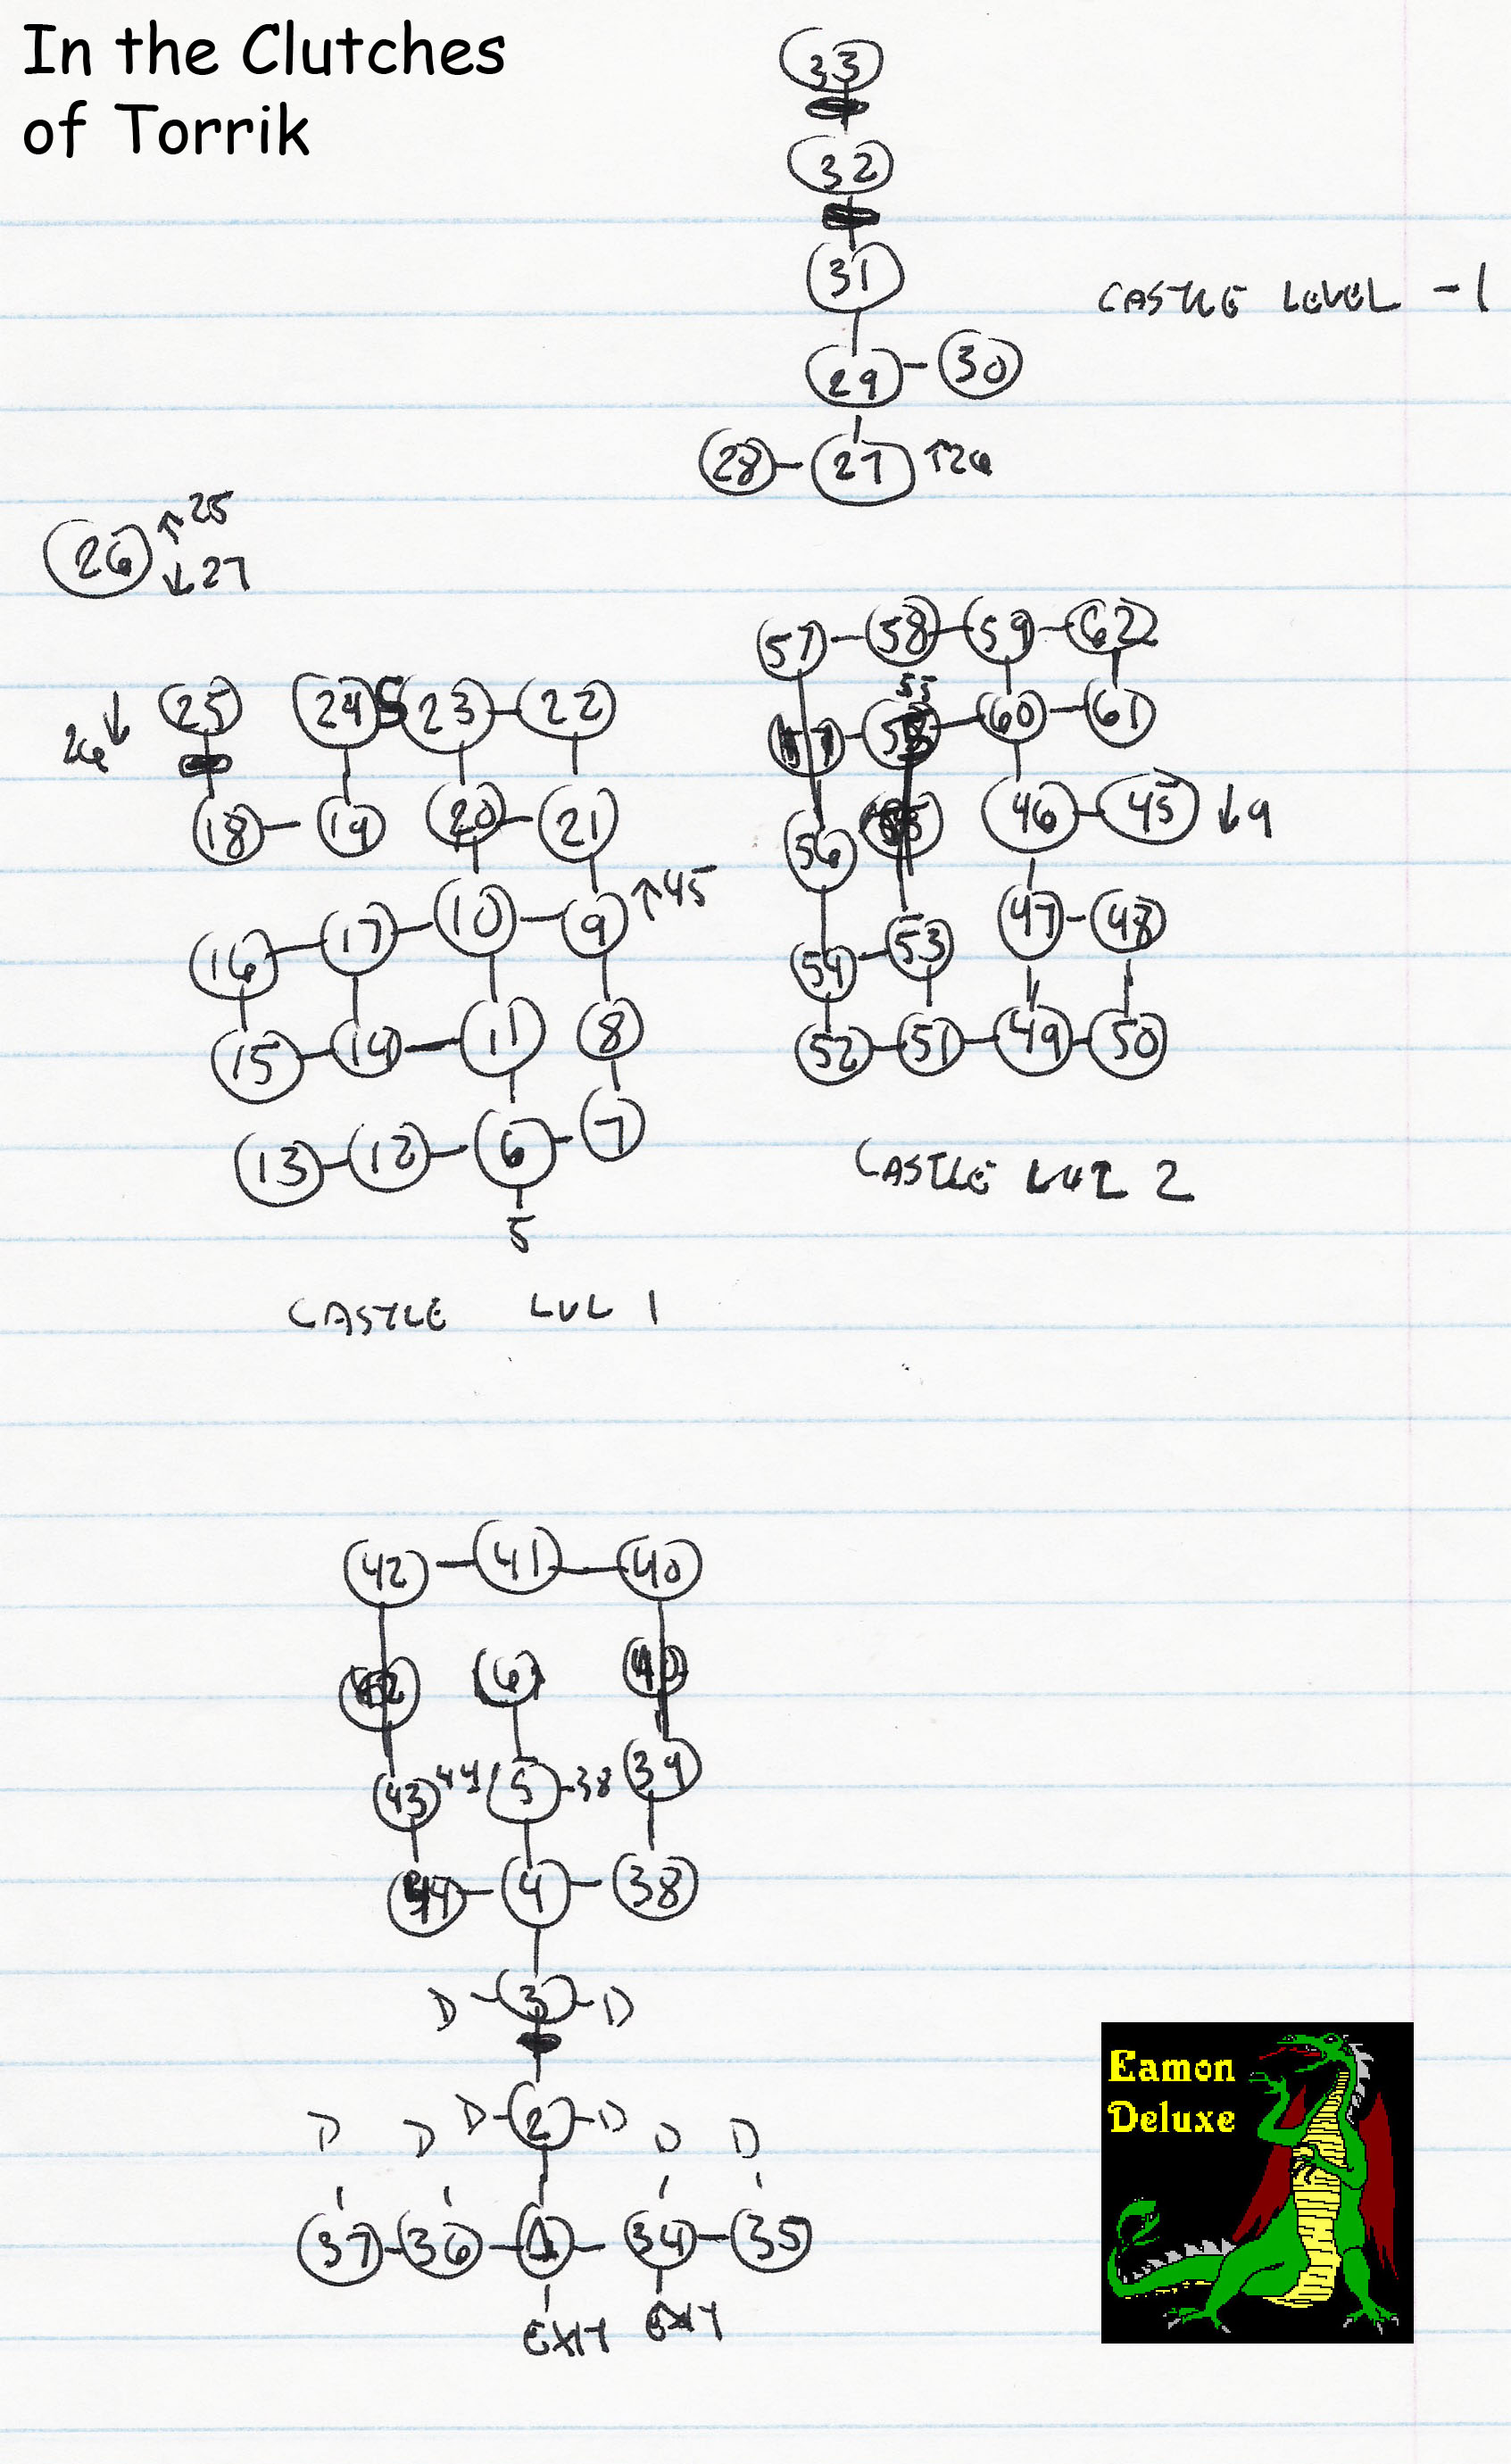 In the Clutches
of Torrik
33
32
31
CASTLE LEVEL -1
29 30
28 27 ↑26
26 ↑25
↓27
57 58 59 62
26↓ 25 24 S 23 22
55 60 61
18 19 20 21
56 46 45 ↓9
16 17 10 9 ↑45
54 53 47 48
15 14 11 8
52 51 49 50
13 12 6 7
5
CASTLE LVL 2
CASTLE LVL 1
42 41 40
6
43 44 5 38 39
44 4 38
D 3 D
D D D 2 D D D
37 36 1 34 35
EXIT EXIT
Eamon
Deluxe